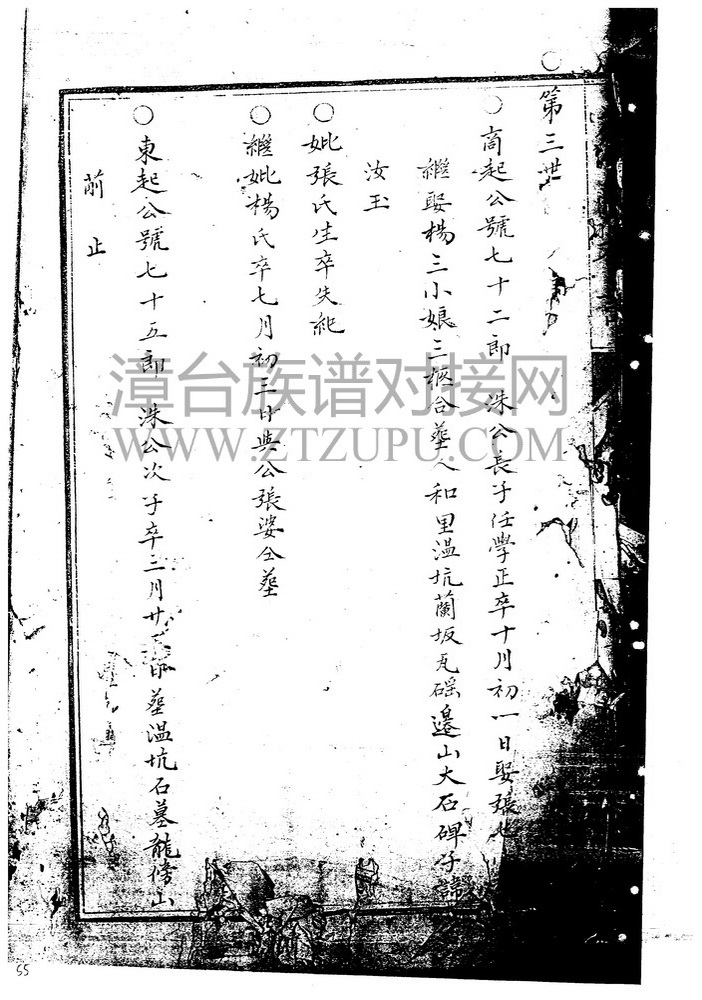 ○第三世
○商起公號七十二郎 洙公長子任學正卒十月初一日娶張七
繼娶楊三小娘三柩合塟人和里溫坑蘭坂瓦磘邊山大石碑子諱
汝玉
○妣張氏生卒失紀
○繼妣楊氏卒七月初三日與公張婆仝塟
○東起公號七十五郎 洙公次子卒二月廿日塟溫坑石墓龍傍山
前止
漳台族谱对接网
WWW.ZTZUPU.COM
55